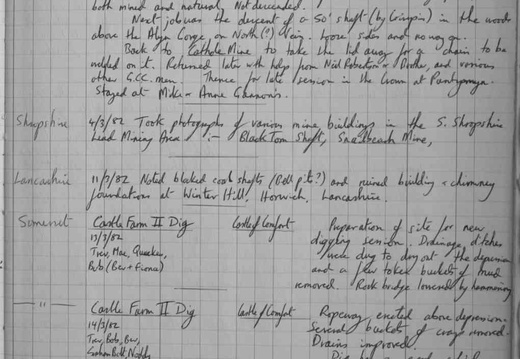 both mined and natural. Not descended.
Next job was the descent of a 50' shaft (by Crispin) in the woods
above the Alyn Gorge, on North(?) Vein. Loose sides and no way on.
Back to Cathole Mine to take the lid away for a chain to be
welded on it. Returned later with help from Nid Robertson + Brother, and various
other G.C.C. men. Thence for late session in the Crown at Pantymwyn.
Stayed at Mike + Anne
Shropshire 4/3/82 Took photographs of various mine buildings in the S. Shropshire
Lead Mining Area :- Black Tom Shaft, Snailbeach Mine,
Lancashire 11/3/82 Noted blocked coal shafts (Bell pits?) and ruined building + chimney
foundations at Winter Hill, Horwich, Lancashire.
Somerset Castle Farm II Dig Castle of Comfort Preparation of site for new
13/3/82 digging session. Drainage ditches
Trev, Mac, Quackers, were dug to dry out the depression
Bob (Bev + Fiona) and a few token buckets of mud
removed. Rock bridge lowered by hammering
—"— Castle Farm II Dig Castle of Comfort Ropeway erected above depression.
14/3/82 Several buckets of removed.
Trev, Bob, Bev, Drains improved.